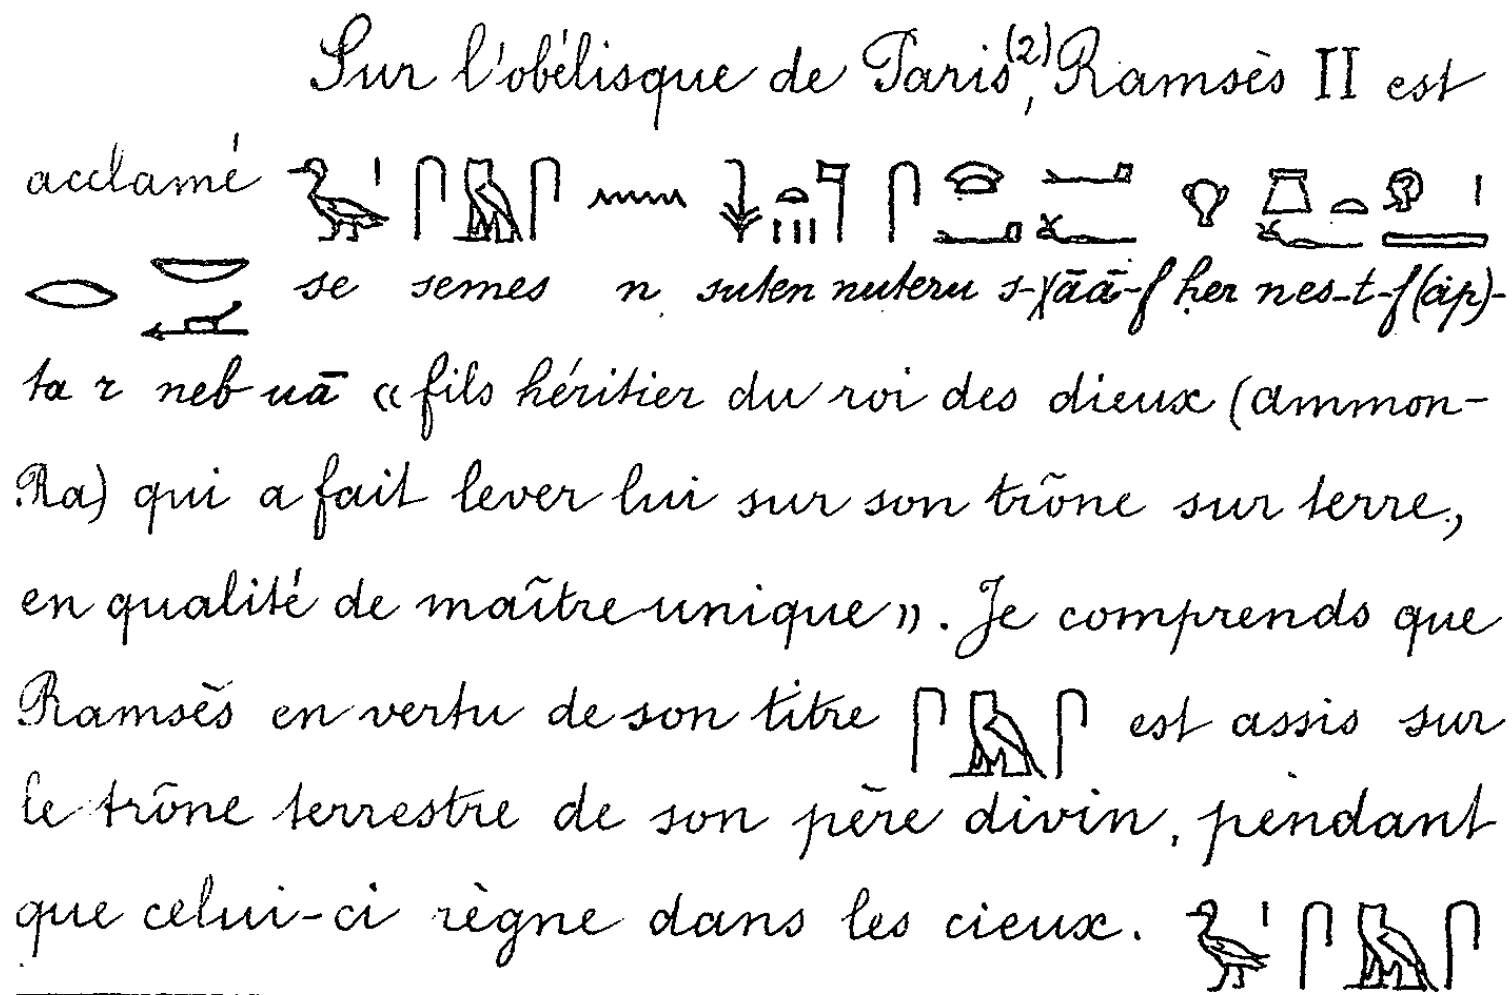 Sur l'obélisque de Paris(2), Ramsès II est
acclamé
se semes n suten nuteru s-χāā-f her nes-t-f (áp)-
ta r neb uā « fils héritier du roi des dieux (ammon-
Ra) qui a fait lever lui sur son trône sur terre,
en qualité de maître unique ». Je comprends que
Ramsès en vertu de son titre est assis sur
le trône terrestre de son père divin, pendant
que celui-ci règne dans les cieux.